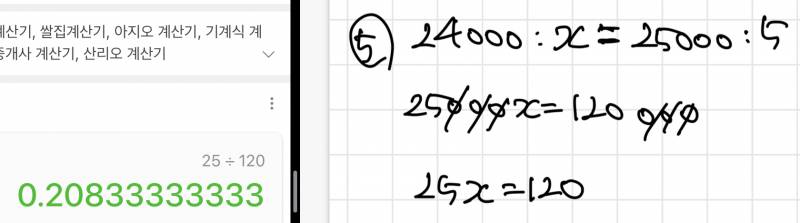 계산기, 쌀집계산기, 아지오 계산기, 기계식 계
중개사 계산기, 산리오 계산기
25 ÷ 120
0.20833333333
⑤ 24000 : x = 25000 : 5
25000x = 120 000
25x = 120